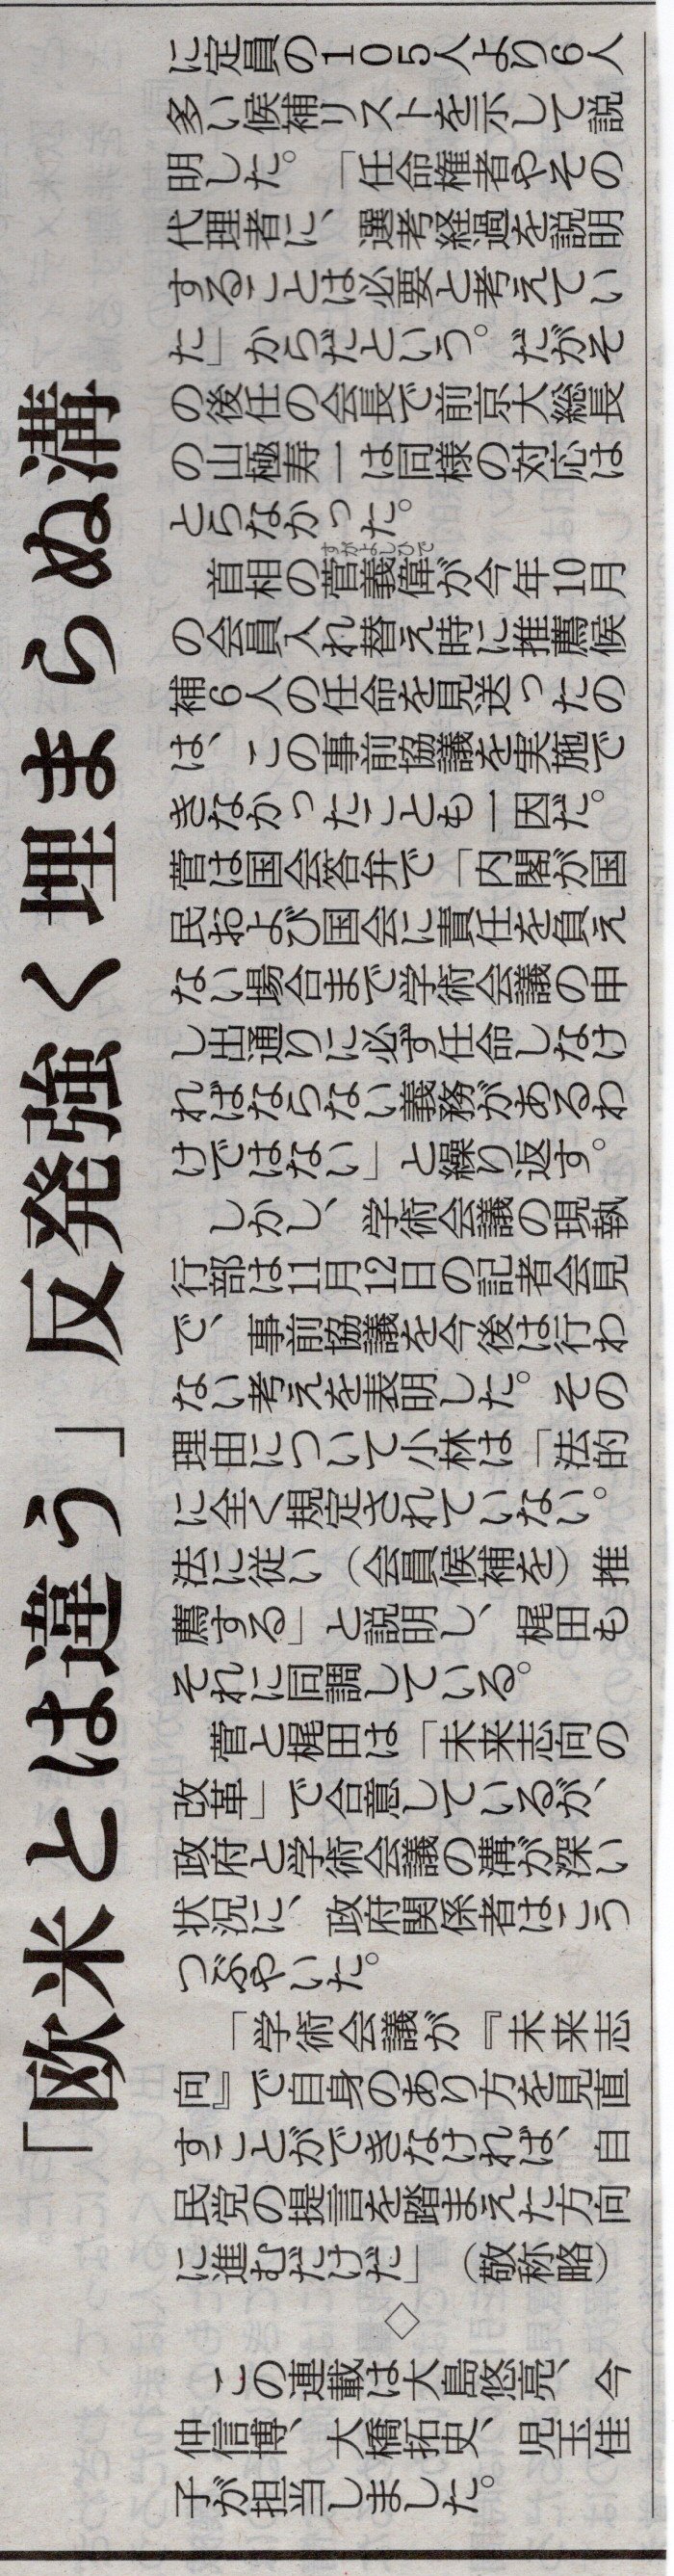 「欧米とは違う」反発強く埋まらぬ溝
に定員の105人より6人
多い候補リストを示して説
明した。「任命権者やその
代理者に、選考経過を説明
することは必要と考えてい
た」からだという。だがそ
の後任の会長で前京大総長
の山極寿一は同様の対応は
とらなかった。
首相の菅義偉が今年10月
すがよしひで
の会員入れ替え時に推薦候
補6人の任命を見送ったの
は、この事前協議を実施で
きなかったことも一因だ。
菅は国会答弁で「内閣が国
民および国会に責任を負え
ない場合まで学術会議の申
し出通りに必ず任命しなけ
ればならない義務があるわ
けではない」と繰り返す。
しかし、学術会議の現執
行部は11月12日の記者会見
で、事前協議を今後は行わ
ない考えを表明した。その
理由について小林は「法的
に全く規定されていない。
法に従い（会員候補を）推
薦する」と説明し、梶田も
それに同調している。
菅と梶田は「未来志向の
改革」で合意しているが、
政府と学術会議の溝が深い
状況に、政府関係者はこう
つぶやいた。
「学術会議が『未来志
向』で自身のあり方を見直
すことができなければ、自
民党の提言を踏まえた方向
に進むだけだ」（敬称略）
◇
この連載は大島悠亮、今
仲信博、大橋拓史、児玉佳
子が担当しました。